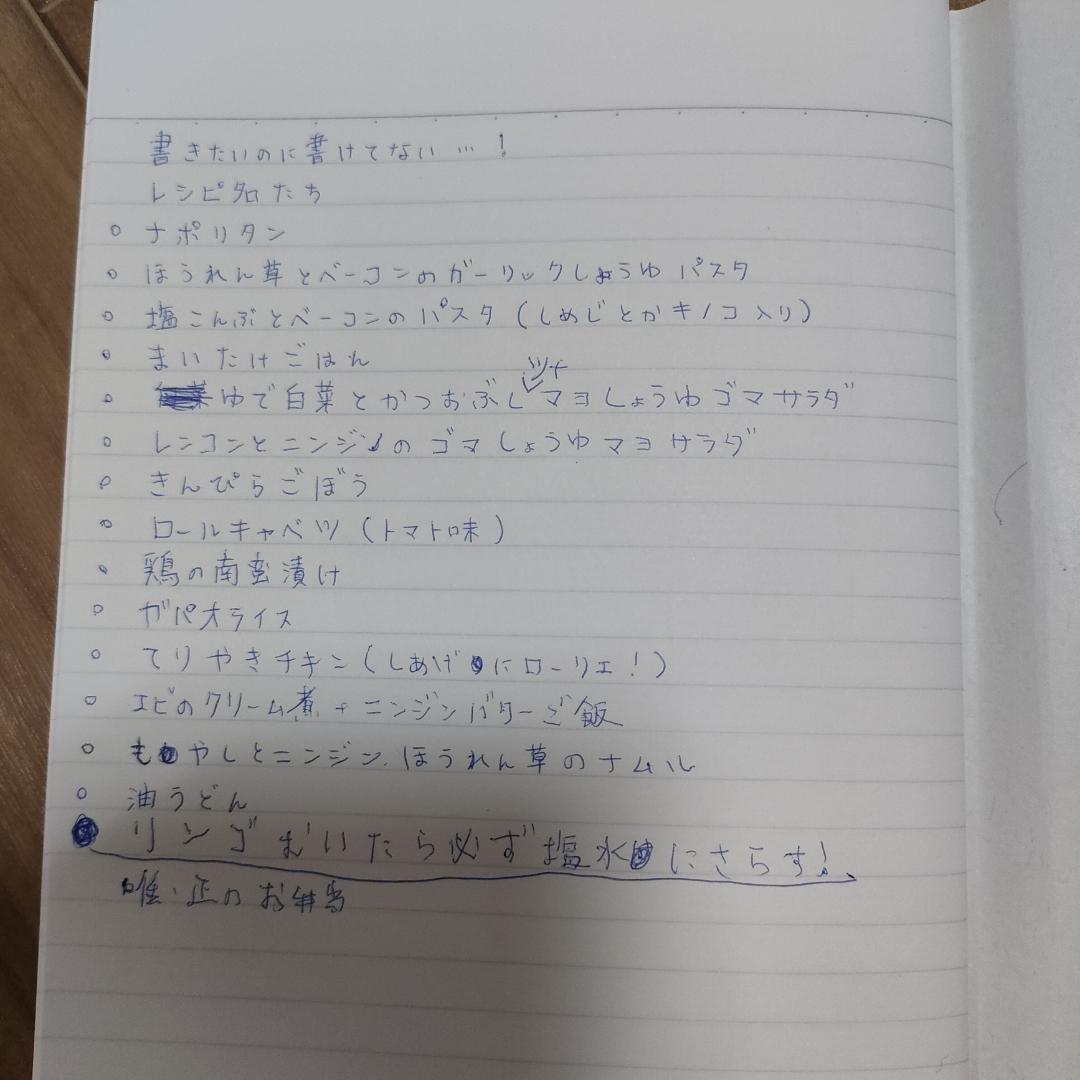 書きたいのに書けてない…!
レシピ名たち
○ ナポリタン
○ ほうれん草とベーコンのガーリックしょうゆパスタ
○ 塩こんぶとベーコンのパスタ(しめじとかキノコ入り)
○ まいたけごはん
○ ゆで白菜とかつおぶしツナマヨしょうゆゴマサラダ
○ レンコンとニンジンのゴマしょうゆマヨサラダ
○ きんぴらごぼう
○ ロールキャベツ(トマト味)
○ 鶏の南蛮漬け
○ ガパオライス
○ てりやきチキン(しあげにローリエ!)
○ エビのクリーム煮+ニンジンバターご飯
○ もやしとニンジン、ほうれん草のナムル
○ 油うどん
● リンゴむいたら必ず塩水にさらす!
唯・正のお弁当